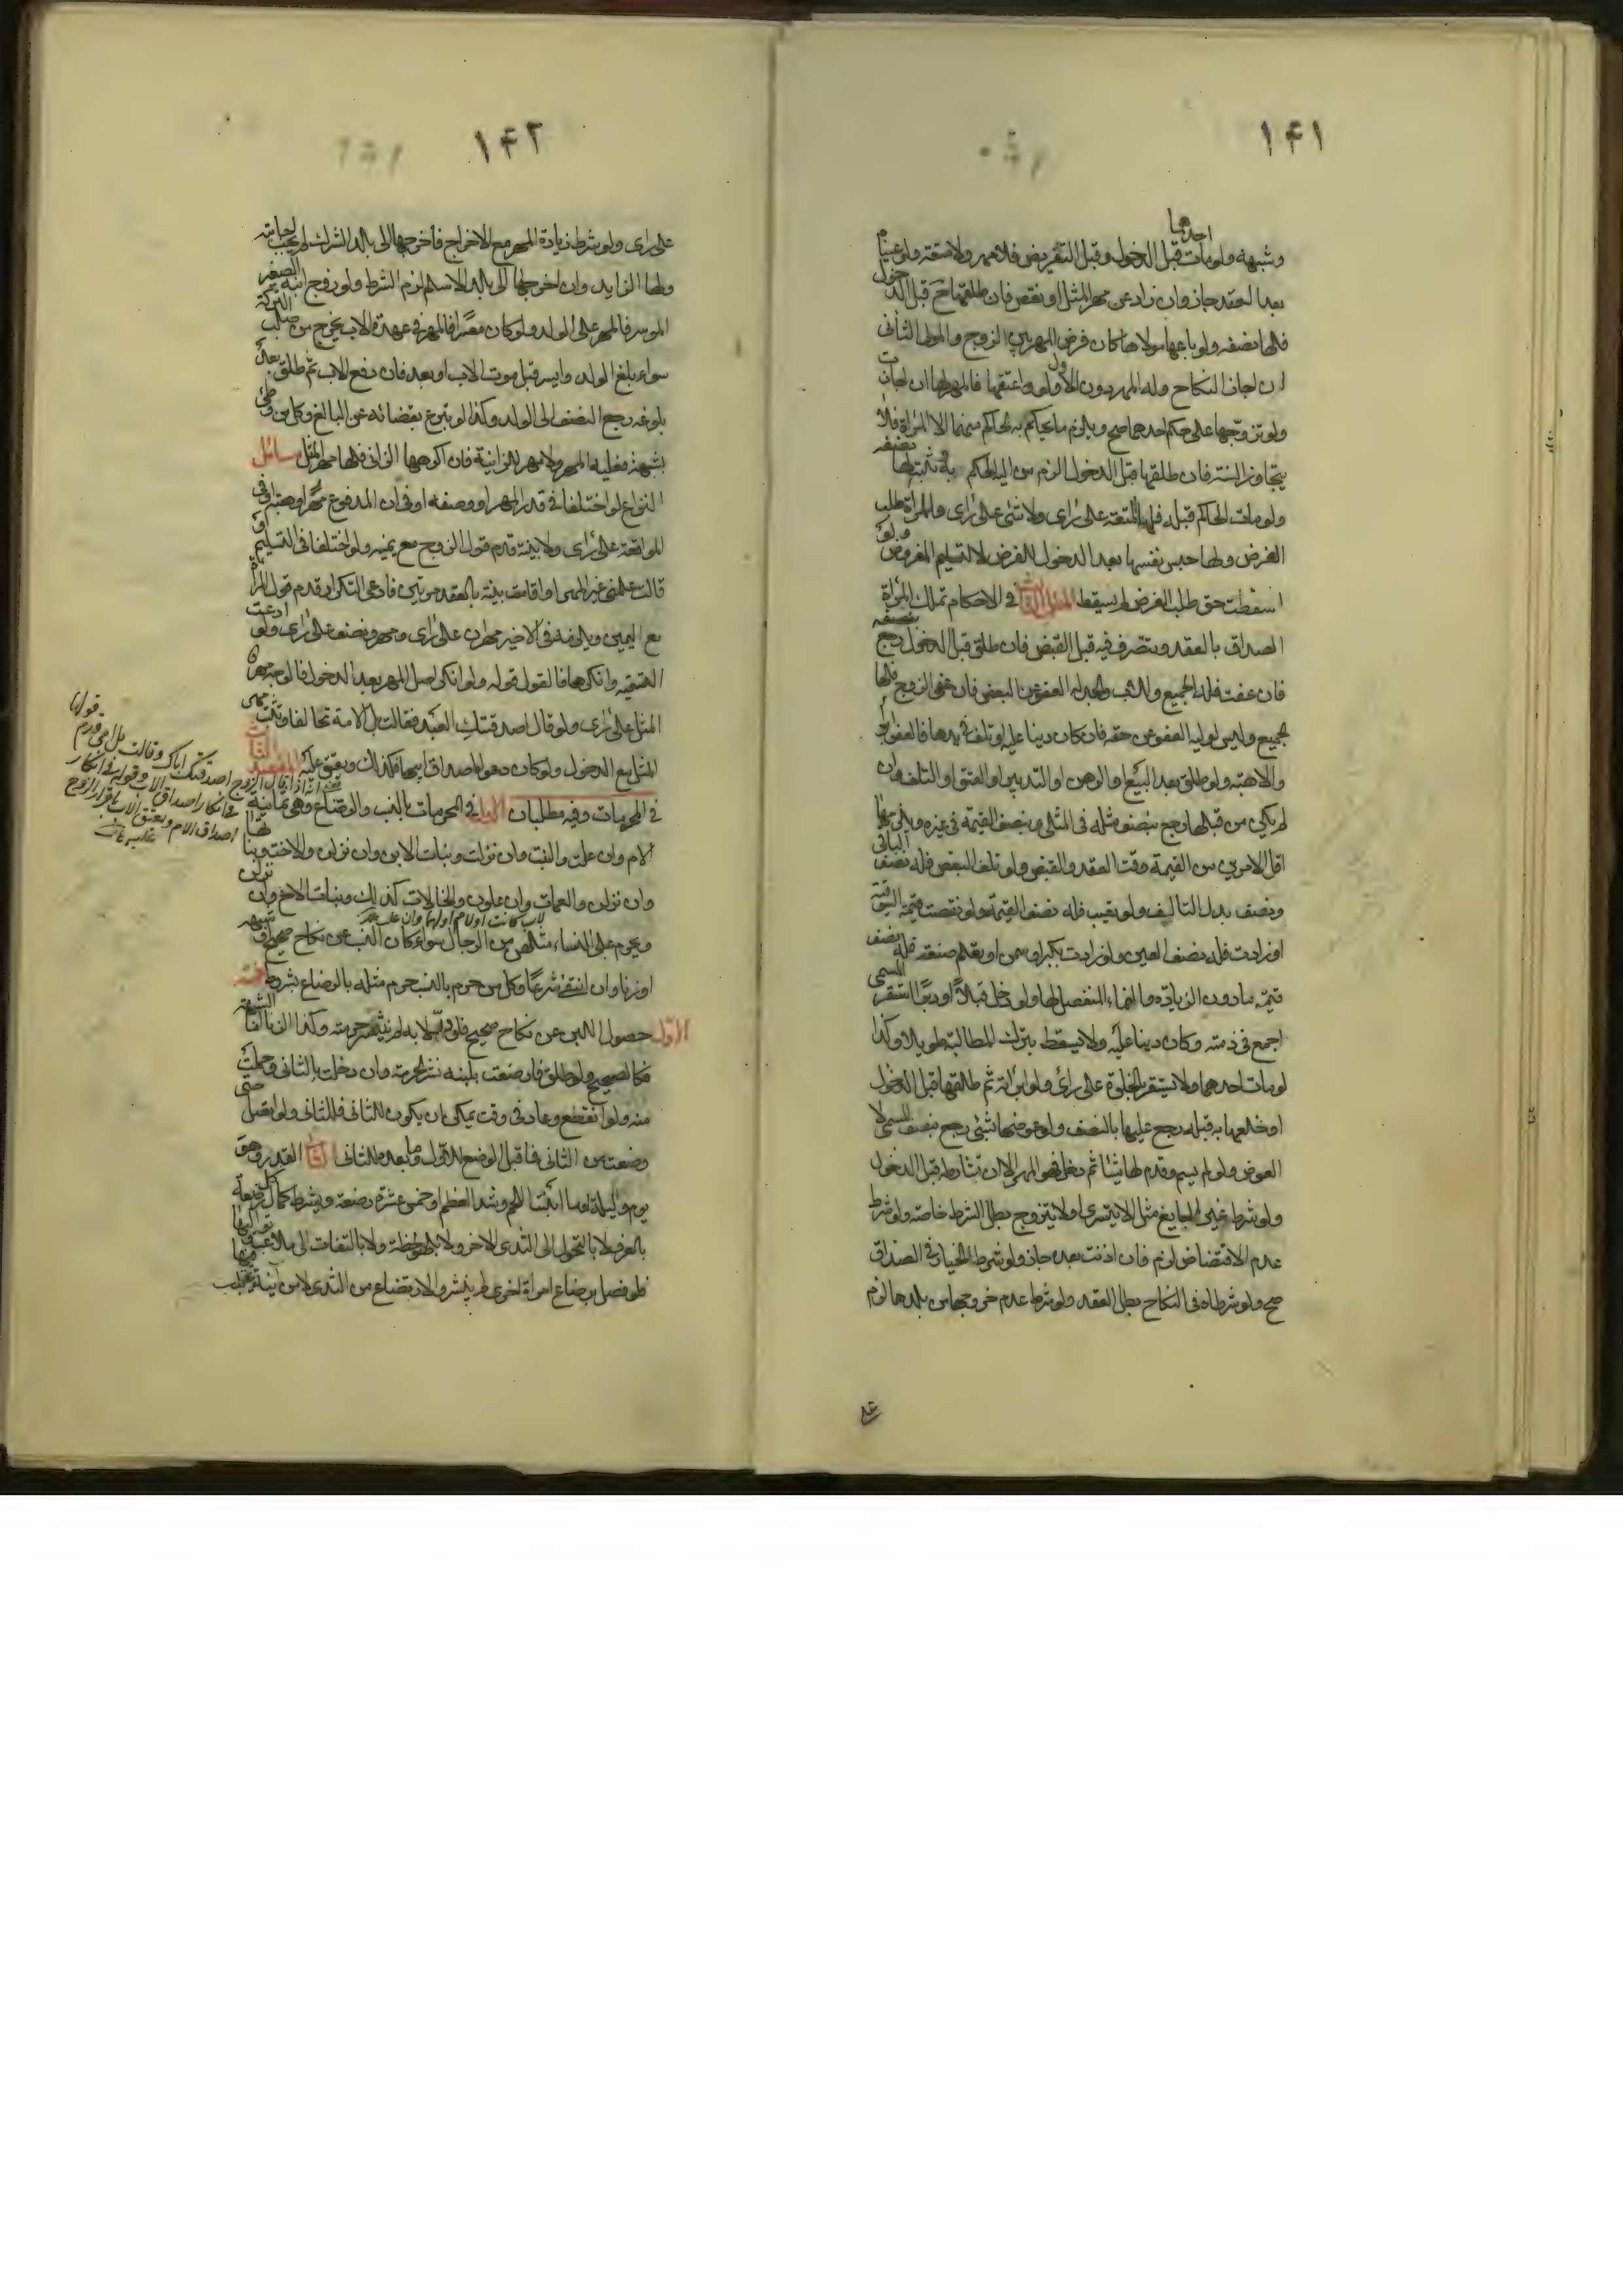 ١٤١
احدهما
وشبهه ولومات قبل الدخول وقبل التفريض فلا مهر ولا متعة ولو عينا
بعد العقد جاز وان زاد عن مهر المثل او نقص فان طلقها ح قبل الدخول
فلها نصفه ولو باعها مولاها كان فرض المهر بين الزوج والمولى الثانى
ان اجاز النكاح وله المهر دون الاول ولو اعتقها فالمهر لها ان اجازت
ولو تزوجها على حكم احدهما صح ويلزم ما يحكم به الحاكم منهما الا المراة فلا
يتجاوز السنة فان طلقها قبل الدخول الزم من اليه الحكم به وثبت لها نصفه
ولو مات الحاكم قبله فلها المتعة على راى ولا شئ على راى وللمراة طلب
الفرض ولها حبس نفسها بعد الدخول للفرض لا لتسليم المفروض ولو
اسقطت حق طلب الفرض لم يسقط المطلب الثالث فى الاحكام تملك المراة
الصداق بالعقد وتتصرف فيه قبل القبض فان طلق قبل الدخول رجع بنصفه
فان عفت فله الجميع وللاب والجد له العفو عن البعض فان عفى الزوج فلها
الجميع وليس لوليه العفو عن حقه فان كان دينا عليه او تلف فى يدها فالعفو ابراء
والا هبة ولو طلق بعد البيع او الرهن او التدبير او العتق او التلف وان
لم يكن من قبلها رجع بنصف مثله فى المثلى وبنصف القيمة فى غيره ويلزمها
اقل الامرين من القيمة وقت العقد والقبض ولو تلف البعض فله نصف الباقى
ونصف بدل التالف ولو تعيب فله نصف القيمة ولو نقصت قيمته السوقية
او زادت فله نصف العين ولو زادت بكبر او سمن او تعلم صنعة فله نصف
قيمته مادون الزيادة والنماء المنفصل لها ولو دخل قبلا او دبرا استقر المسمى
اجمع فى ذمته وكان دينا عليه ولا يسقط بترك المطالبة طويلا وكذا
لومات احدهما ولا يستقر بالخلوة على راى ولو ابراته ثم طلقها قبل الدخول
او خالعها به قبله رجع عليها بالنصف ولو عوضها بشئ رجع بنصف المسمى لا
العوض ولو لم يسم وقدم لها شيئا ثم دخل فهو المهر الا ان تشارطه قبل الدخول
ولو شرط غير الجايز مثل الا يتسرى او لا يتزوج بطل الشرط خاصة ولو شرط
عدم الاقتضاض لزم فان اذنت بعده جاز ولو شرط الخيار فى الصداق
صح ولو شرطاه فى النكاح بطل العقد ولو شرط عدم خروجها من بلدها لزم
١٤٢
على راى ولو شرط زيادة المهر مع الاخراج فاخرجها الى بلد الشرك لم يجب اجابته
ولها الزايد وان اخرجها الى بلد الاسلام لزم الشرط ولو زوج ابنه الصغير
الموسر فالمهر على الولد ولو كان معسرا فالمهر فى عهدة الاب يخرج من صلب التركة
سواء بلغ الولد وايسر قبل موت الاب او بعده فان دفع الاب ثم طلق بعد
بلوغه رجع النصف الى الولد وكذا لو تبرع بقضائه عن البالغ وكل من وطئ
بشبهة فعليه المهر ولا مهر للزانية فان اكرهها الزانى فلها مهر المثل مسائل
النزاع لو اختلفا فى قدر المهر او وصفه او فى ان المدفوع مهرا او هبة او فى
المواقعة على راى ولا بينة قدم قول الزوج مع يمينه ولو اختلفا فى التسليم او
قالت علمنى غير المهر او اقامت بينة بالعقد مرتين فادعى التكرار قدم قول المراة
مع اليمين ويلزمه فى الاخير مهران على راى ومهر ونصف على راى ولو ادعت
التسمية وانكرها فالقول قوله ولو انكر اصل المهر بعد الدخول فالوجه مهر
المثل على راى ولو قال اصدقتك العبد فقالت بل الامة تحالفا وثبت مهر
المثل مع الدخول ولو كان دعواها صداق ابيها فكذلك ويعتق عليه المقصد الثالث
فى المحرمات وفيه مطلبان الاول فى المحرمات بالنسب والرضاع وهى ثمانية
الام وان علت والبنت وان نزلت وبنات الابن وان نزلن والاخت وبناتها
وان نزلن والعمات وان علون والخالات كذلك وبنات الاخ وان نزلن
لاب كانت او لام او لهما وان علا
ويحرم على النساء مثلهن من الرجال سواء كان النسب عن نكاح صحيح او شبهه
او زنا وان انتفى شرعا وكل من حرم بالنسب حرم مثله بالرضاع بشروط خمسة
الاول حصول اللبن عن نكاح صحيح فلو در لا به لم ينشر حرمته وكذا الزنا اما الشبهة
فكالصحيح ولو طلق فارضعت بلبنه نشر الحرمة وان دخلت بالثانى وحملت
منه ولو انقطع وعاد فى وقت يمكن ان يكون للثانى فللثانى ولو اتصل حتى
وضعت من الثانى فما قبل الوضع للاول وما بعده للثانى الثانى القدر وهو
يوم وليلة او ما انبت اللحم وشد العظم او خمس عشرة رضعة ويشترط كمال كل رضعة
بالعرف لا بالتحول الى الثدى الاخر ولا بلفظه ولا بالتفات الى ملاعبة وتواليها
فلو فصل برضاع امراة اخرى لم ينشر والارتضاع من الثدى لا من آنية
قولها
اصدقتك اباك وقالت بل امى قدم
اذا قال الزوج
فى انكار اصداق الاب وقوله فى انكار
اصداق الام ويعتق الاب باقرار الزوج